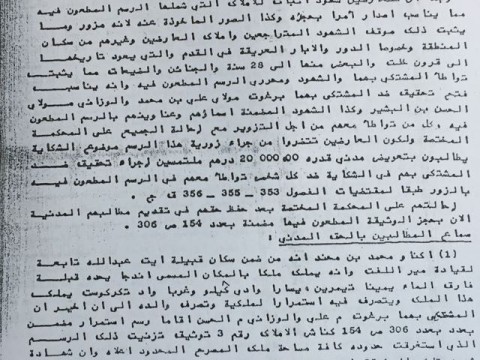 مما يناسب اصدار امرا بحجزه وكذا الصور الماخوذة عنه لانه مزور وما
يثبت ذلك موقف الشهود المتراجعين واملاك العارضين وغيرهم من سكان
المنطقة وخصوصا الدور والابار العريقة في القدم والتي يعود تاريخها
الى قرون خلت والبعض منها الى 28 سنة والجنائن والضيعات مما يثبت
تواطأ المشتكى بهما والشهود ومحرري الرسم المطعون فيه وانه يناسب
فتح تحقيق ضد المشتكى بهما برغوت مولاي علي بن محمد والوزاني مولاي
الحسن بن البشير وكذا الشهود المضمنة اسماؤهم وعناوينهم بالرسم المطعون
فيه وكل من تواطأ معهم من اجل التزوير مع احالة الجميع على المحكمة
المختصة ولكون العارضين تتضرروا من جراء زورية هذا الرسم موضوع الشكاية
يطالبون بتعويض مدني قدره 20.000,00 درهم ملتمسين اجراء تحقيق ضد
المشتكى بهم في الشكاية ضد كل شخص تواطأ معهم في الرسم المطعون فيه
بالزور طبقا لمقتضيات الفصول 353 - 355 - 356 ق ج .
واحالتهم على المحكمة المختصة بعد حفظ حقهم في تقديم مطالبهم المدنية
الان بحجز الوثيقة المطعون فيها مضمنة بعدد 154 ص 306 .
سماع المطالبين بالحق المدني :
(1) اكنا و محمد بن محند انه من ضمن سكان قبيلة ايت عبدالله تابعة
لقيادة مير اللفت وانه يملك ملكا بالمكان المسمى اندجا يحده قبلة
فارق الماء يمينا تيمرين ويسارا وادي كيلو وغربا واد تكركوست يملك
هذا الملك ويتصرف فيه استمرارا لملكية وتصرف والده الى ان اخبر ان
المشتكى بهما برغوت م علي والوزاني م الحسن اقاما رسم استمرار مضمن
بعدد 306 ص 154 كناش الاملاك رقم 3 توثيق تزنيت ذلك الرسم
الذي استغرقت حدوده كافة مساحة ملك المصرح المحدود اعلاه وان شهادة